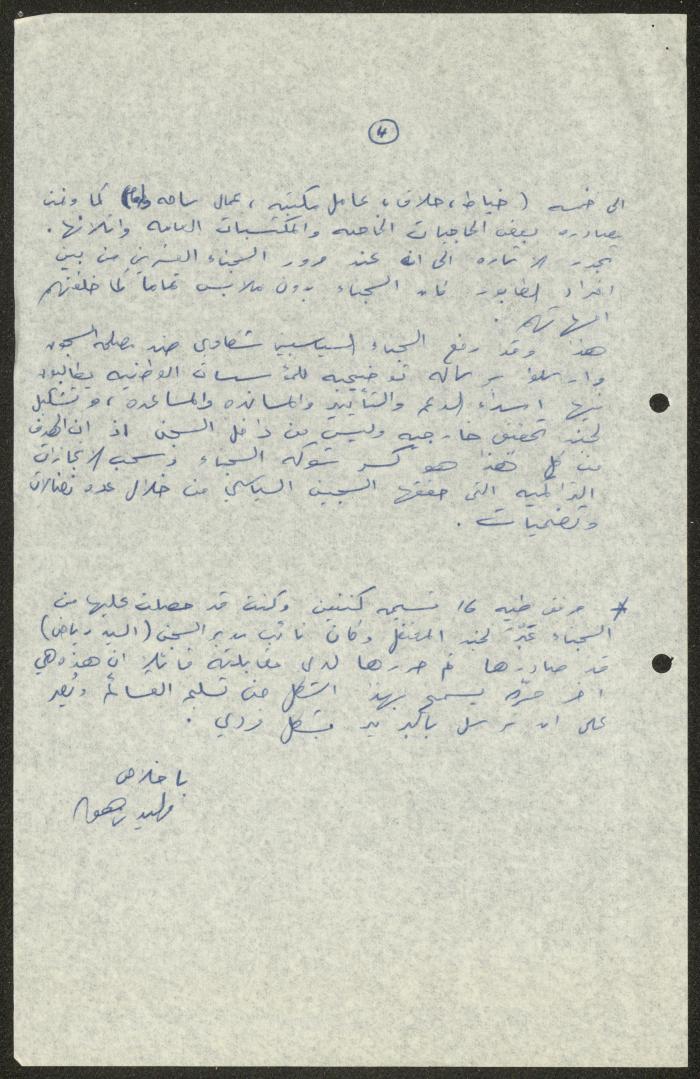 4
الى خمسه (خياط، حلاق، عامل مكتبه، عمال ساحه) كما وتمت
مصادره بعض الحاجيات الخاصه والمكتسبات العامه واتلافها.
تجدر الاشاره الى انه عند مرور السجناء العشرين من بين
افراد الطابور كان السجناء بدون ملابس تماماً كما خلقتهم
امهاتهم.
هذا وقد رفع السجناء السياسيين شكاوى ضد مصلحه السجون
وارسلوا برساله توضيحيه للمؤسسات الوطنيه يطالبون
بها اسداء الدعم والتأييد والمسانده والمساعده، وتشكيل
لجنه تحقيق خارجيه وليس من داخل السجن اذ ان الهدف
من كل هذا هو كسر شوكه السجناء وسحب الانجازات
التي حققها السجين السياسي من خلال عده نضالات
وتضحيات.
* مرفق طيه 16 قسيمه كنتين وكنت قد حصلت عليها من
السجناء عبر لجنه المعتقل وكان نائب مدير السجن (السيد رياض)
قد صادرها ثم حررها لدى مقابلته قائلا ان هذه هي
اخر مره يسمح بهذا الشكل من تسليم القسائم
على ان ترسل بالبريد بشكل فردي.
باخلاص
وليد